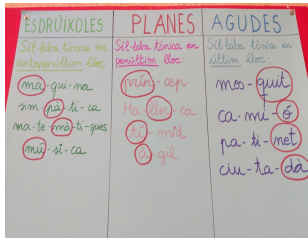 ESDRÚIXOLES
Síl·laba tònica en
antepenúltim lloc:
mà-qui-na
sim-pà-ti-ca
ma-te-mà-ti-ques
mú-si-ca
PLANES
Síl·laba tònica en
penúltim lloc:
prín-cep
Ma-llor-ca
tí-mid
à-gil
AGUDES
Síl·laba tònica en
últim lloc:
mos-quit
ca-mi-ó
pa-ti-net
ciu-ta-dà